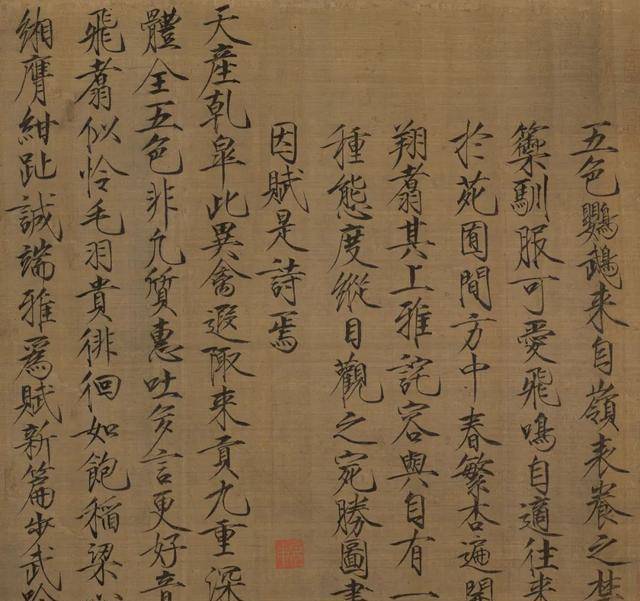 五色鸚鵡来自嶺表養之禁
籞馴服可愛飛鳴自適往来
於苑囿間方中春繁杏遍開
翔翥其上雅詫容與自有一
種態度縱目觀之宛勝圖畫
因賦是詩焉
天產乾皐此異禽遐陬来貢九重深
體全五色非凡質惠吐多言更好音
飛翥似憐毛羽貴徘徊如飽稻粱
緗膺紺趾誠端雅為賦新篇步武